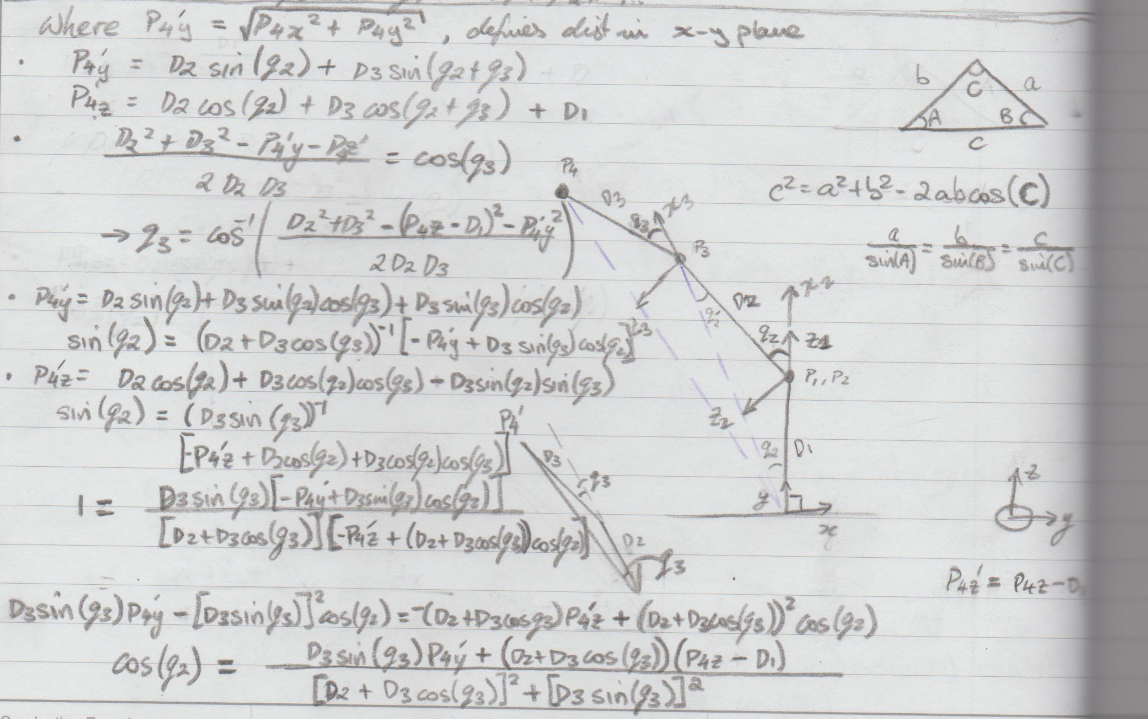 Where P4'y = √P4x² + P4y², defines dist in x-y plane
· P4'y = D2 sin(q2) + D3 sin(q2+q3)
P4'z = D2 cos(q2) + D3 cos(q2+q3) + D1
· D2² + D3² - P4'y - P4z' / 2 D2 D3 = cos(q3)
→ q3 = cos⁻¹( D2²+D3² - (P4z - D1)² - P4'y² / 2D2 D3 )
· P4'y = D2 sin(q2) + D3 sin(q2)cos(q3) + D3 sin(q3)cos(q2)
sin(q2) = (D2 + D3 cos(q3))⁻¹ [-P4'y + D3 sin(q3)cos(q2)]
· P4'z = D2cos(q2) + D3cos(q2)cos(q3) - D3sin(q2)sin(q3)
sin(q2) = (D3 sin(q3))⁻¹
[-P4'z + D2cos(q2) + D3cos(q2)cos(q3)]
1 = D3 sin(q3)[-P4'y + D3sin(q3)cos(q2)] / [D2 + D3cos(q3)][-P4'z + (D2+D3cos(q3))cos(q2)]
D3sin(q3)P4'y - [D3sin(q3)]²cos(q2) = -(D2+D3cosq3)P4'z + (D2+D3cos(q3))² cos(q2)
cos(q2) = D3 sin(q3)P4'y + (D2+D3 cos(q3))(P4z - D1) / [D2 + D3 cos(q3)]² + [D3 sin(q3)]²
b
C
a
A
B
c
c² = a² + b² - 2ab cos(C)
a/sin(A) = b/sin(B) = c/sin(C)
P4
D3
q3
x3
P3
z3
D2
q2'
x2
q2
z1
P1, P2
z2
q2
D1
y
x
P4'
D3
q3
D2
q3
z
y
P4z' = P4z - D1